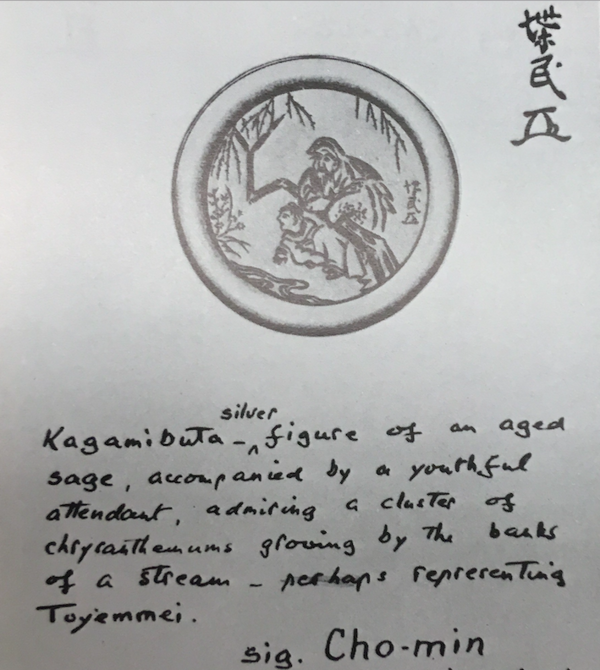 蝶
民
silver
Kagamibuta – ‸ figure of an aged
sage, accompanied by a youthful
attendant, admiring a cluster of
chrysanthemums growing by the banks
of a stream – perhaps representing
Toyemmei.
sig. Cho-min